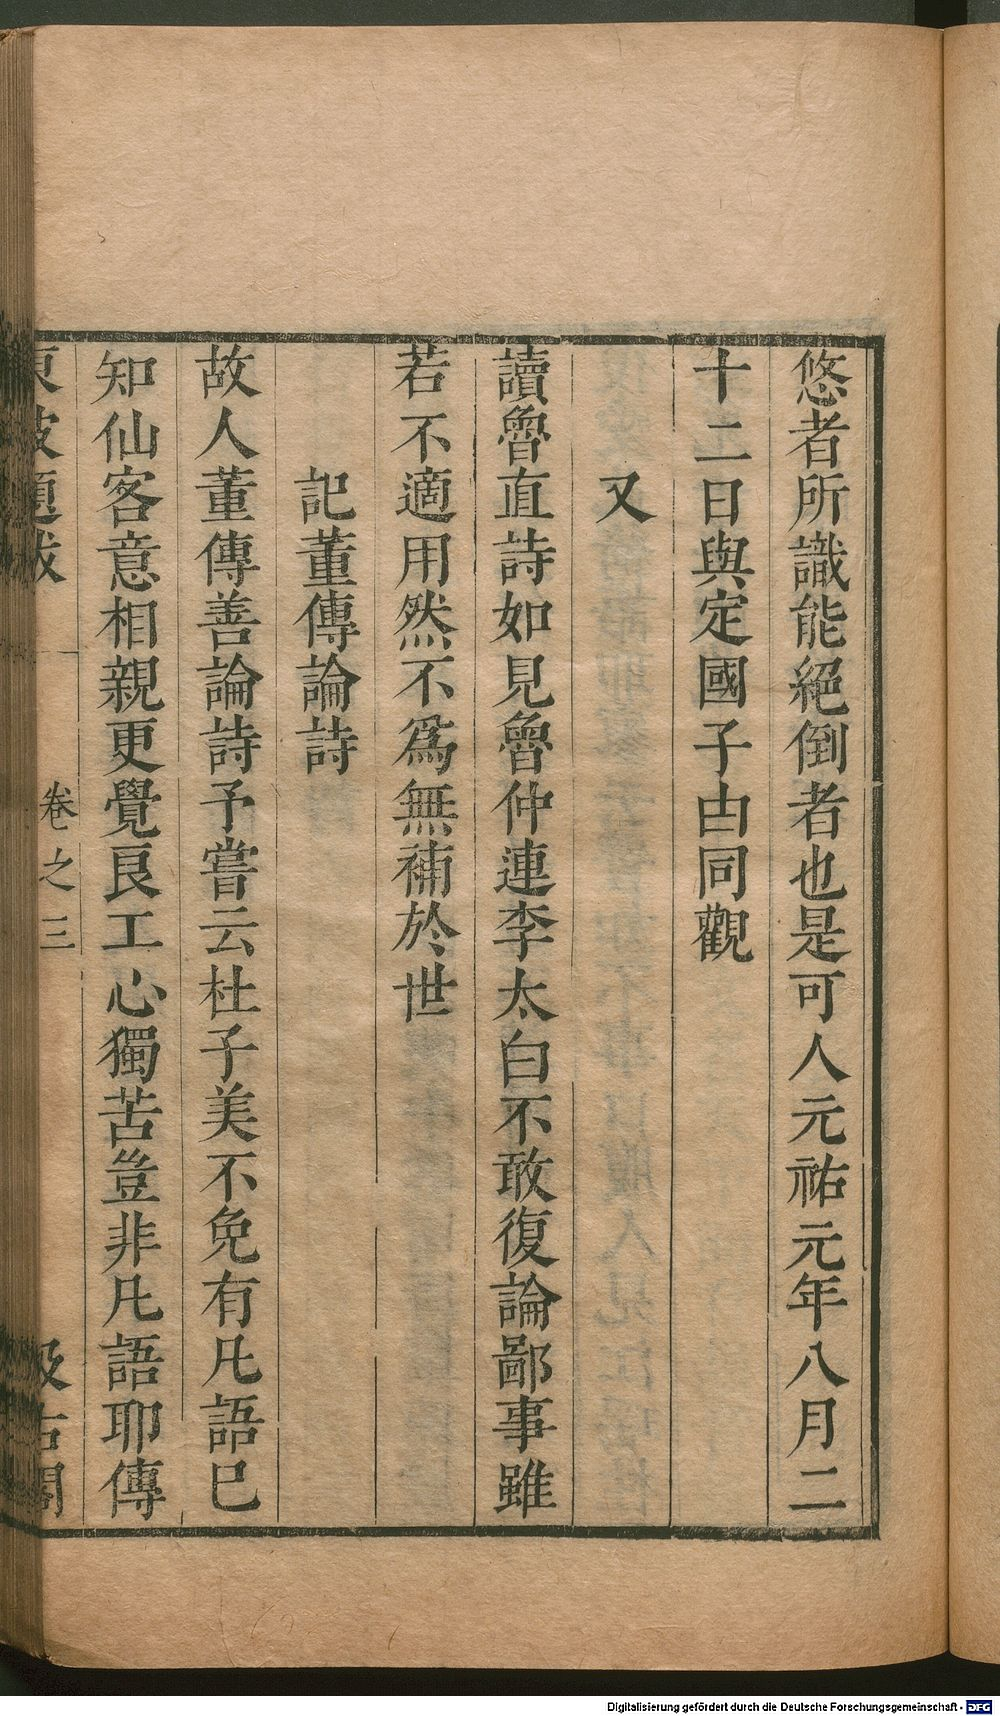 悠者所識能絕倒者也是可人元祐元年八月二
十二日與定國子由同觀
又
讀魯直詩如見魯仲連李太白不敢復論鄙事雖
若不適用然不爲無補於世
記董傳論詩
故人董傳善論詩予嘗云杜子美不免有凡語巳
知仙客意相親更覺良工心獨苦豈非凡語耶傳
東坡題跋 卷之三 汲古閣
Digitalisierung gefördert durch die Deutsche Forschungsgemeinschaft - DFG